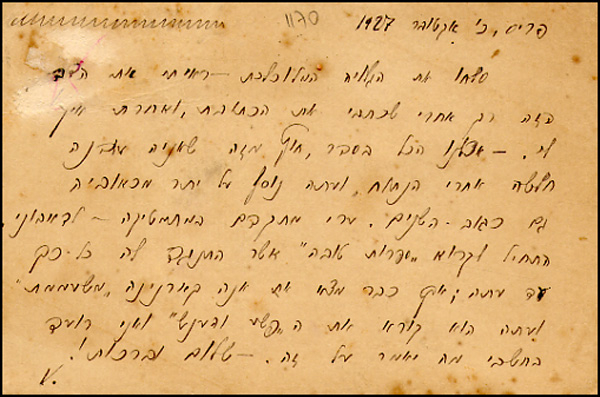 1170
פריס, כ' אקטובר 1927
סלחו את הגלויה המלוכלכת – ראיתי את
הזה רק אחרי שכתבתי את הכתובת, ואחרת אין
לי. – אצלנו הכל בסדר, חוץ מזה שאניה עדנה
חלשה אחרי הנתוח, ועתה נוסף על יתר מכאוביה
גם כאב-השנים. ערי מתקדם במתמטיקה – לדאבוני,
התחיל לקרוא "ספרות טובה" אשר התנגד לה כל-כך
עד עתה; אך כבר מצא את אנה קארנינה "משעממת"
ועתה הוא קורא את ה"פשע ועונש" ואני רועד
בחשבי מה יאמר על זה. – שלום וברכות!
V.